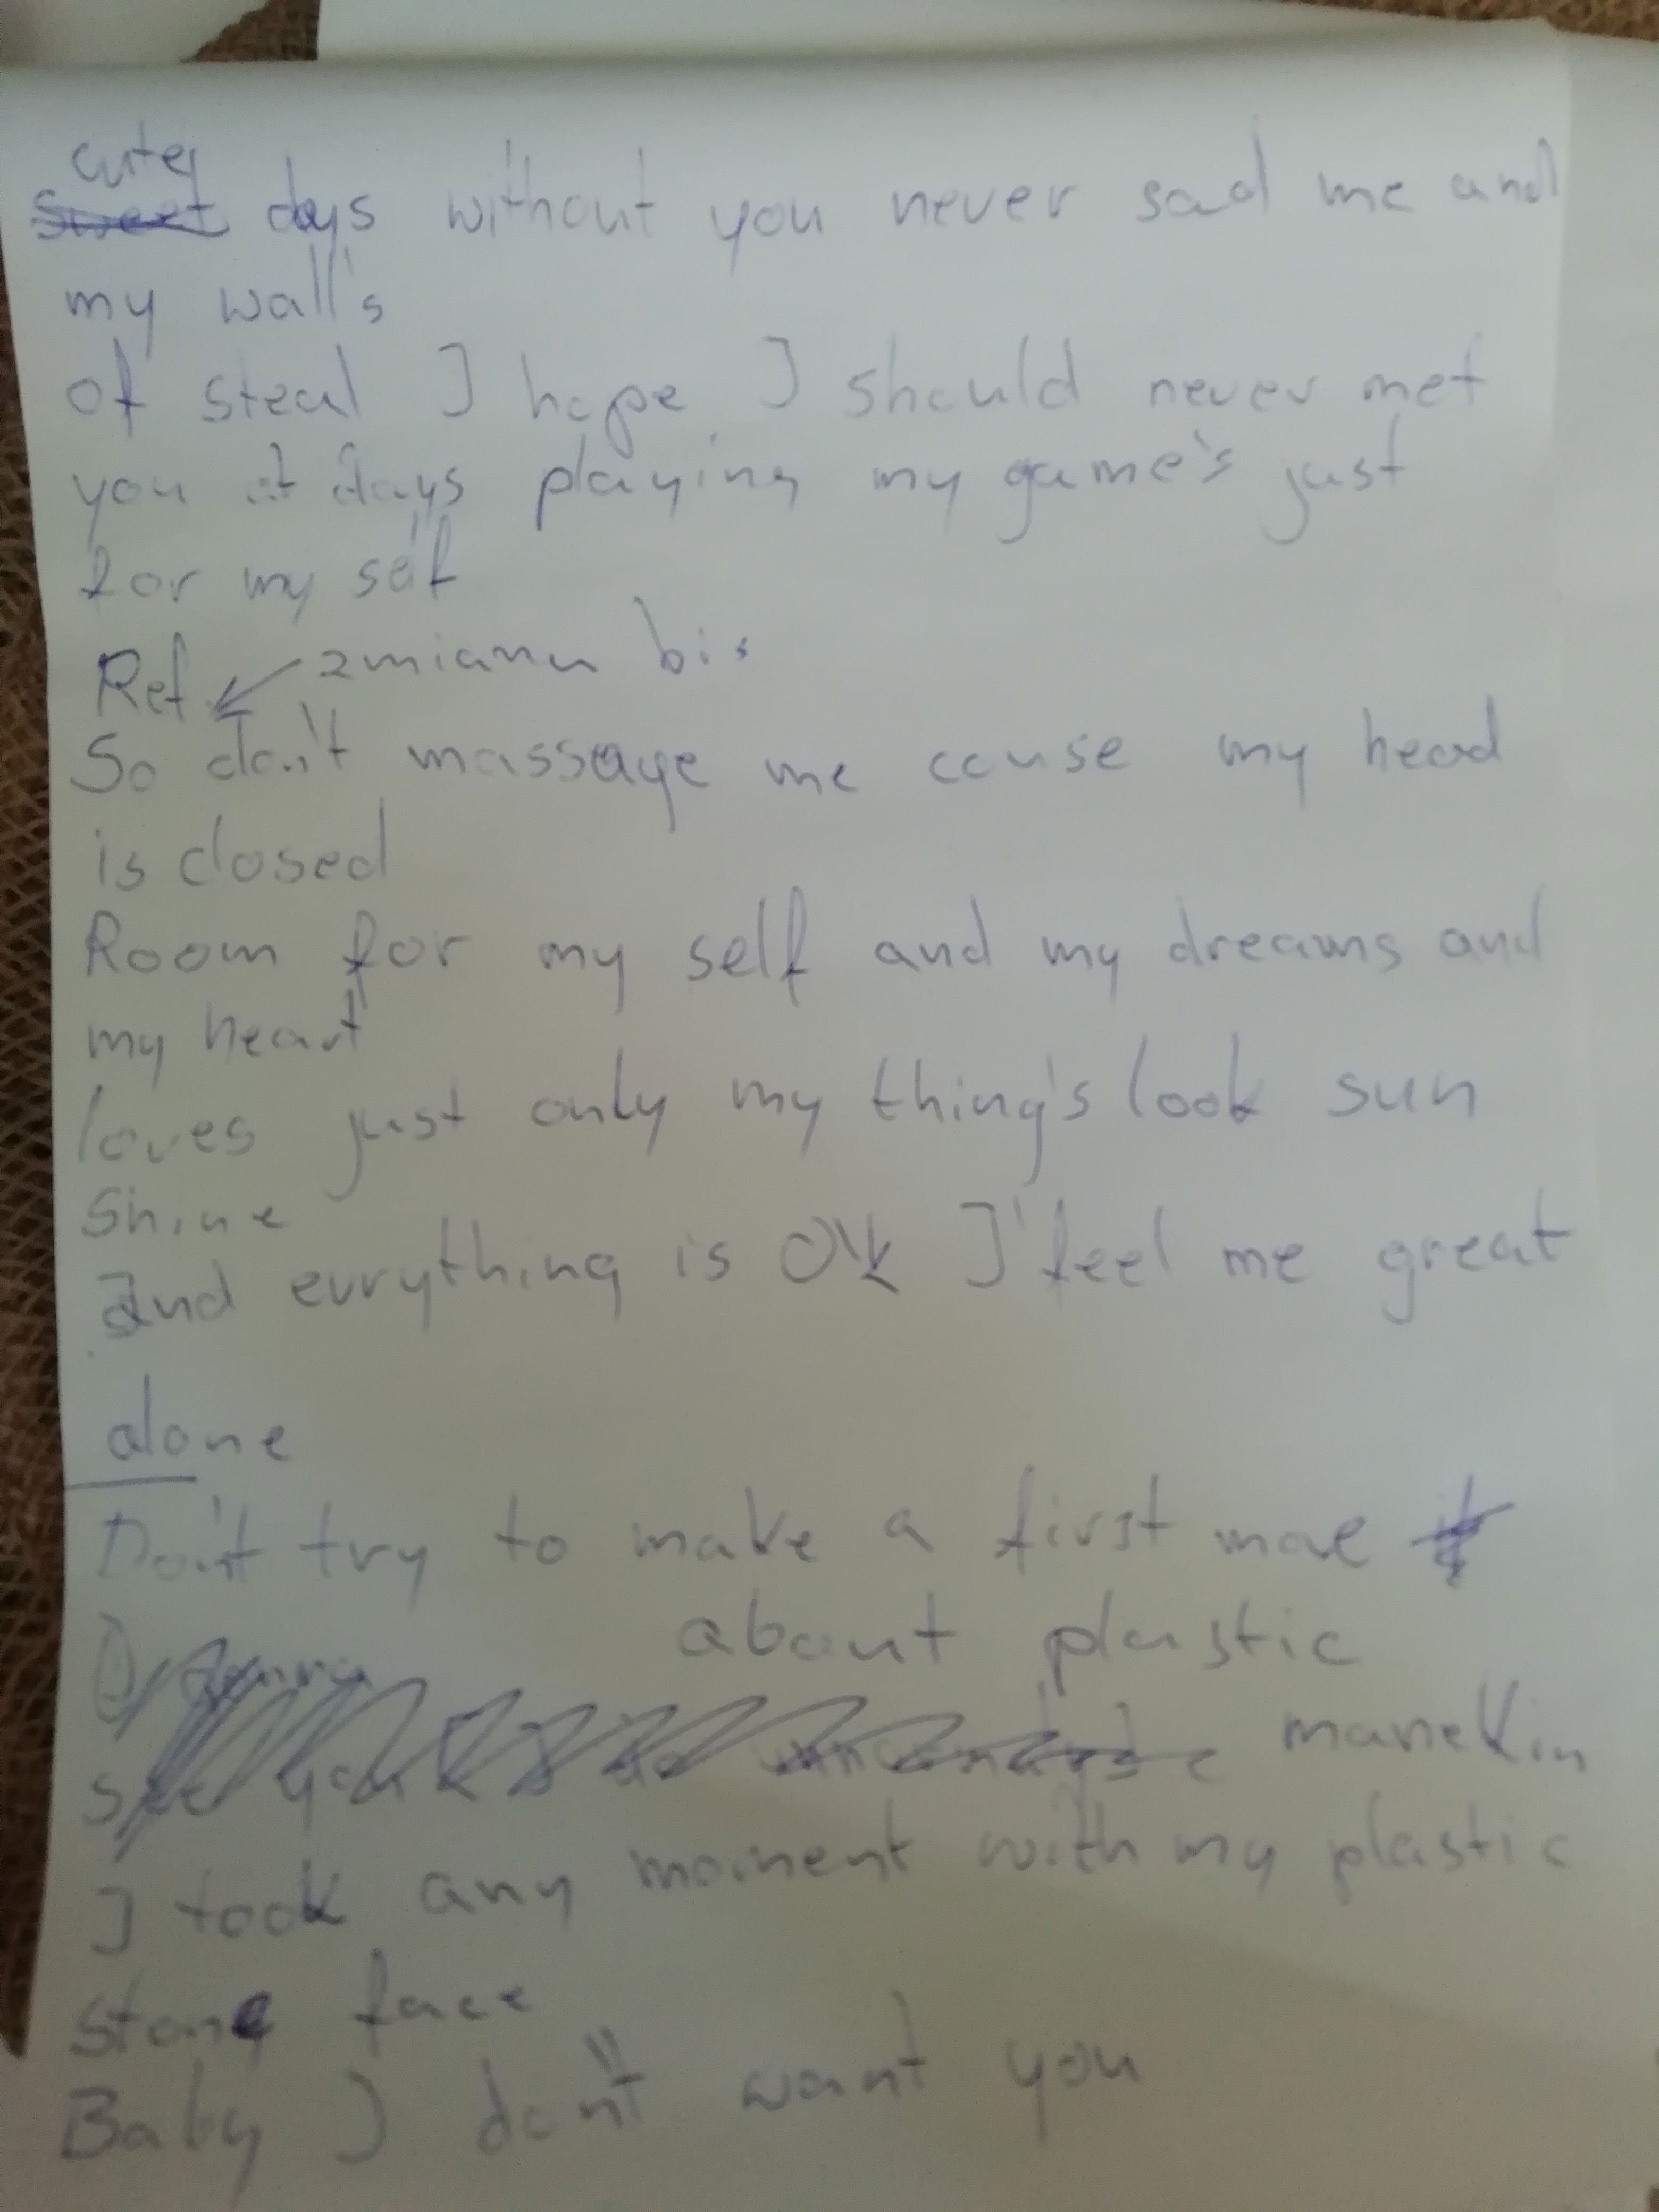 cutey
Sweet days without you never sad me and
my wall's
of steal I hope I should never met
you at days playing my game's just
for my self
Ref zmiana bis
So don't massage me cause my head
is closed
Room for my self and my dreams and
my heart
loves just only my thing's look sun
Shine
and evrything is OK I feel me great
alone
Don't try to make a first move
about plastic
see you manekin
I took any moment with my plastic
stone face
Baby I don't want you